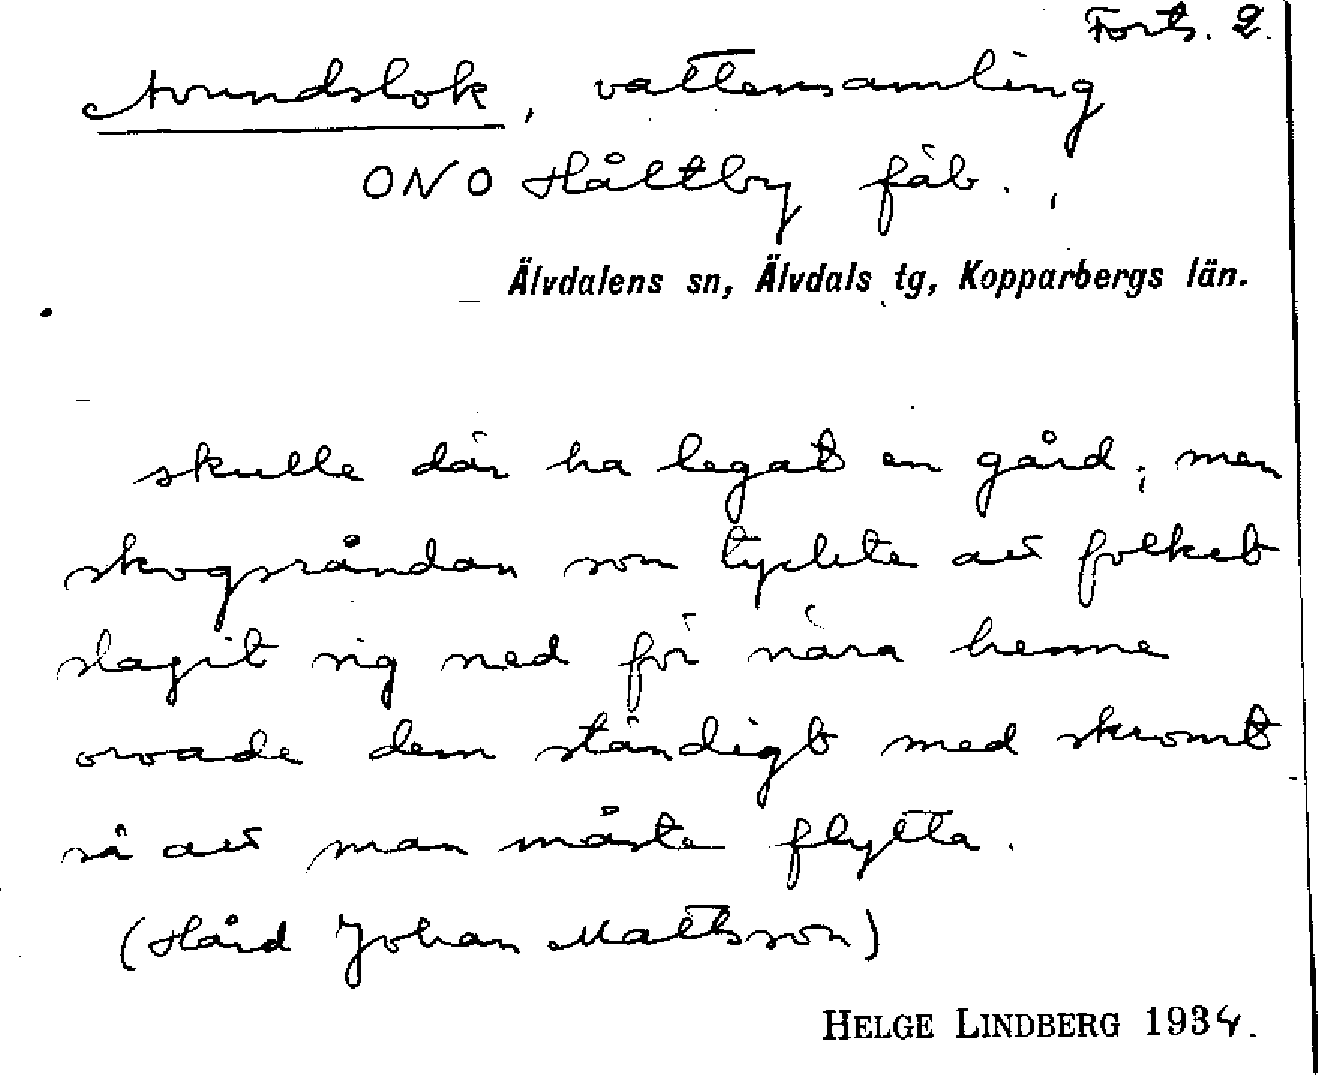 Forts. 2.
Avundslok, vattensamling
ONO Håltby fäb.,
Älvdalens sn, Älvdals tg, Kopparbergs län.
skulle där ha legat en gård; men
skogsråndan som tyckte att folket
slagit sig ned för nära henne
oroade dem ständigt med skromt
så att man måste flytta.
(Hård Johan Mattsson)
HELGE LINDBERG 1934.